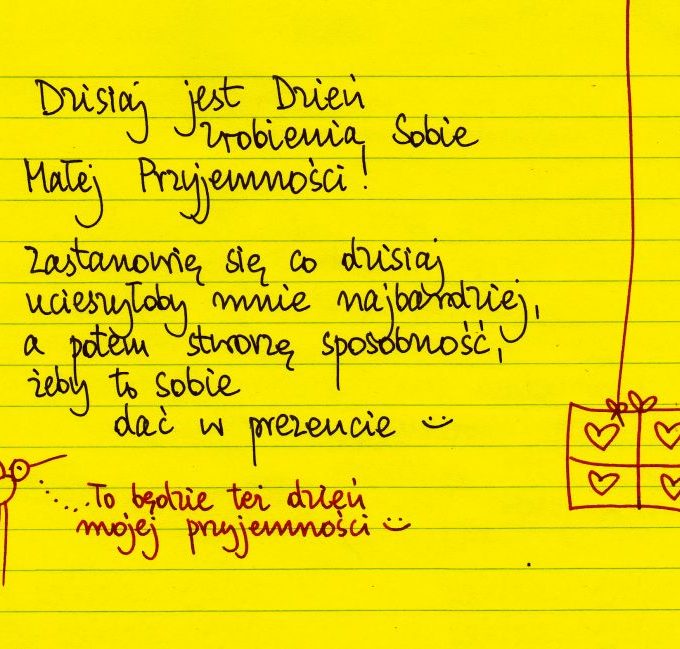 Dzisiaj jest Dzień
zrobienia Sobie
Małej Przyjemności!
Zastanowię się co dzisiaj
ucieszyłoby mnie najbardziej,
a potem stworzę sposobność,
żeby to sobie
dać w prezencie :)
.....To będzie też dzień
mojej przyjemności :)